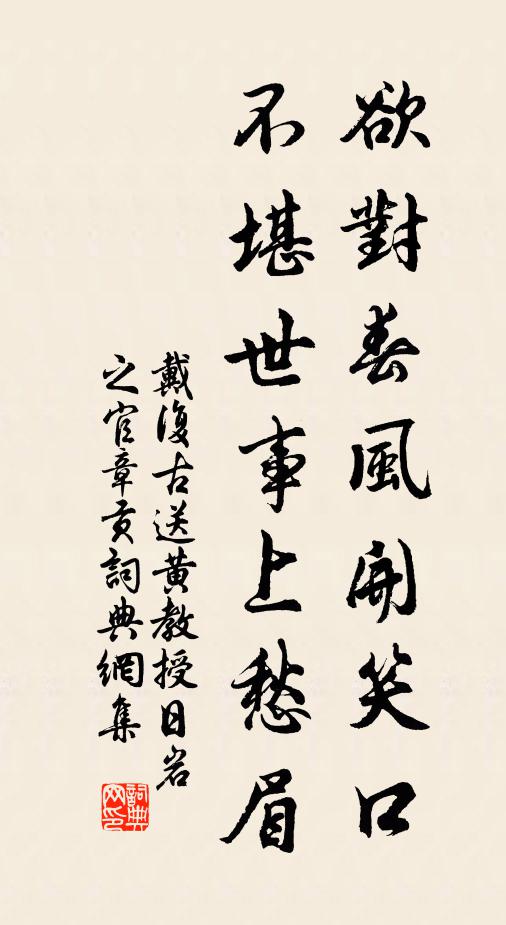 欲對春風開笑口
不堪世事上愁眉
戴復古送黃教授日岩
之官章貢詞典網集
詞典
网印